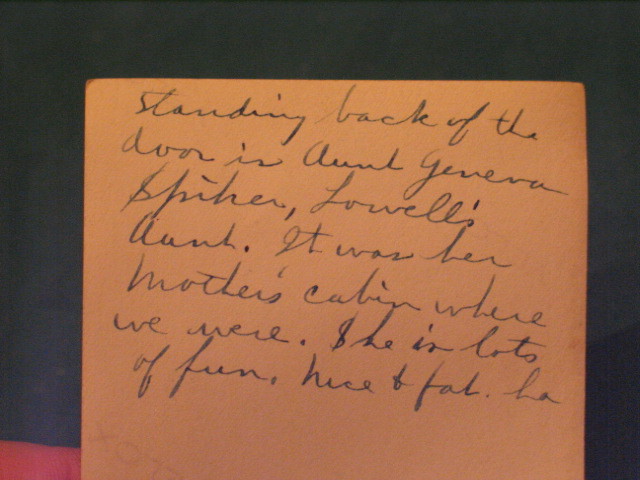 standing back of the
door is Aunt Geneva
Spiher, Lowell's
Aunt. It was her
Mother's cabin where
we were. She is lots
of fun. Nice & fat. ha